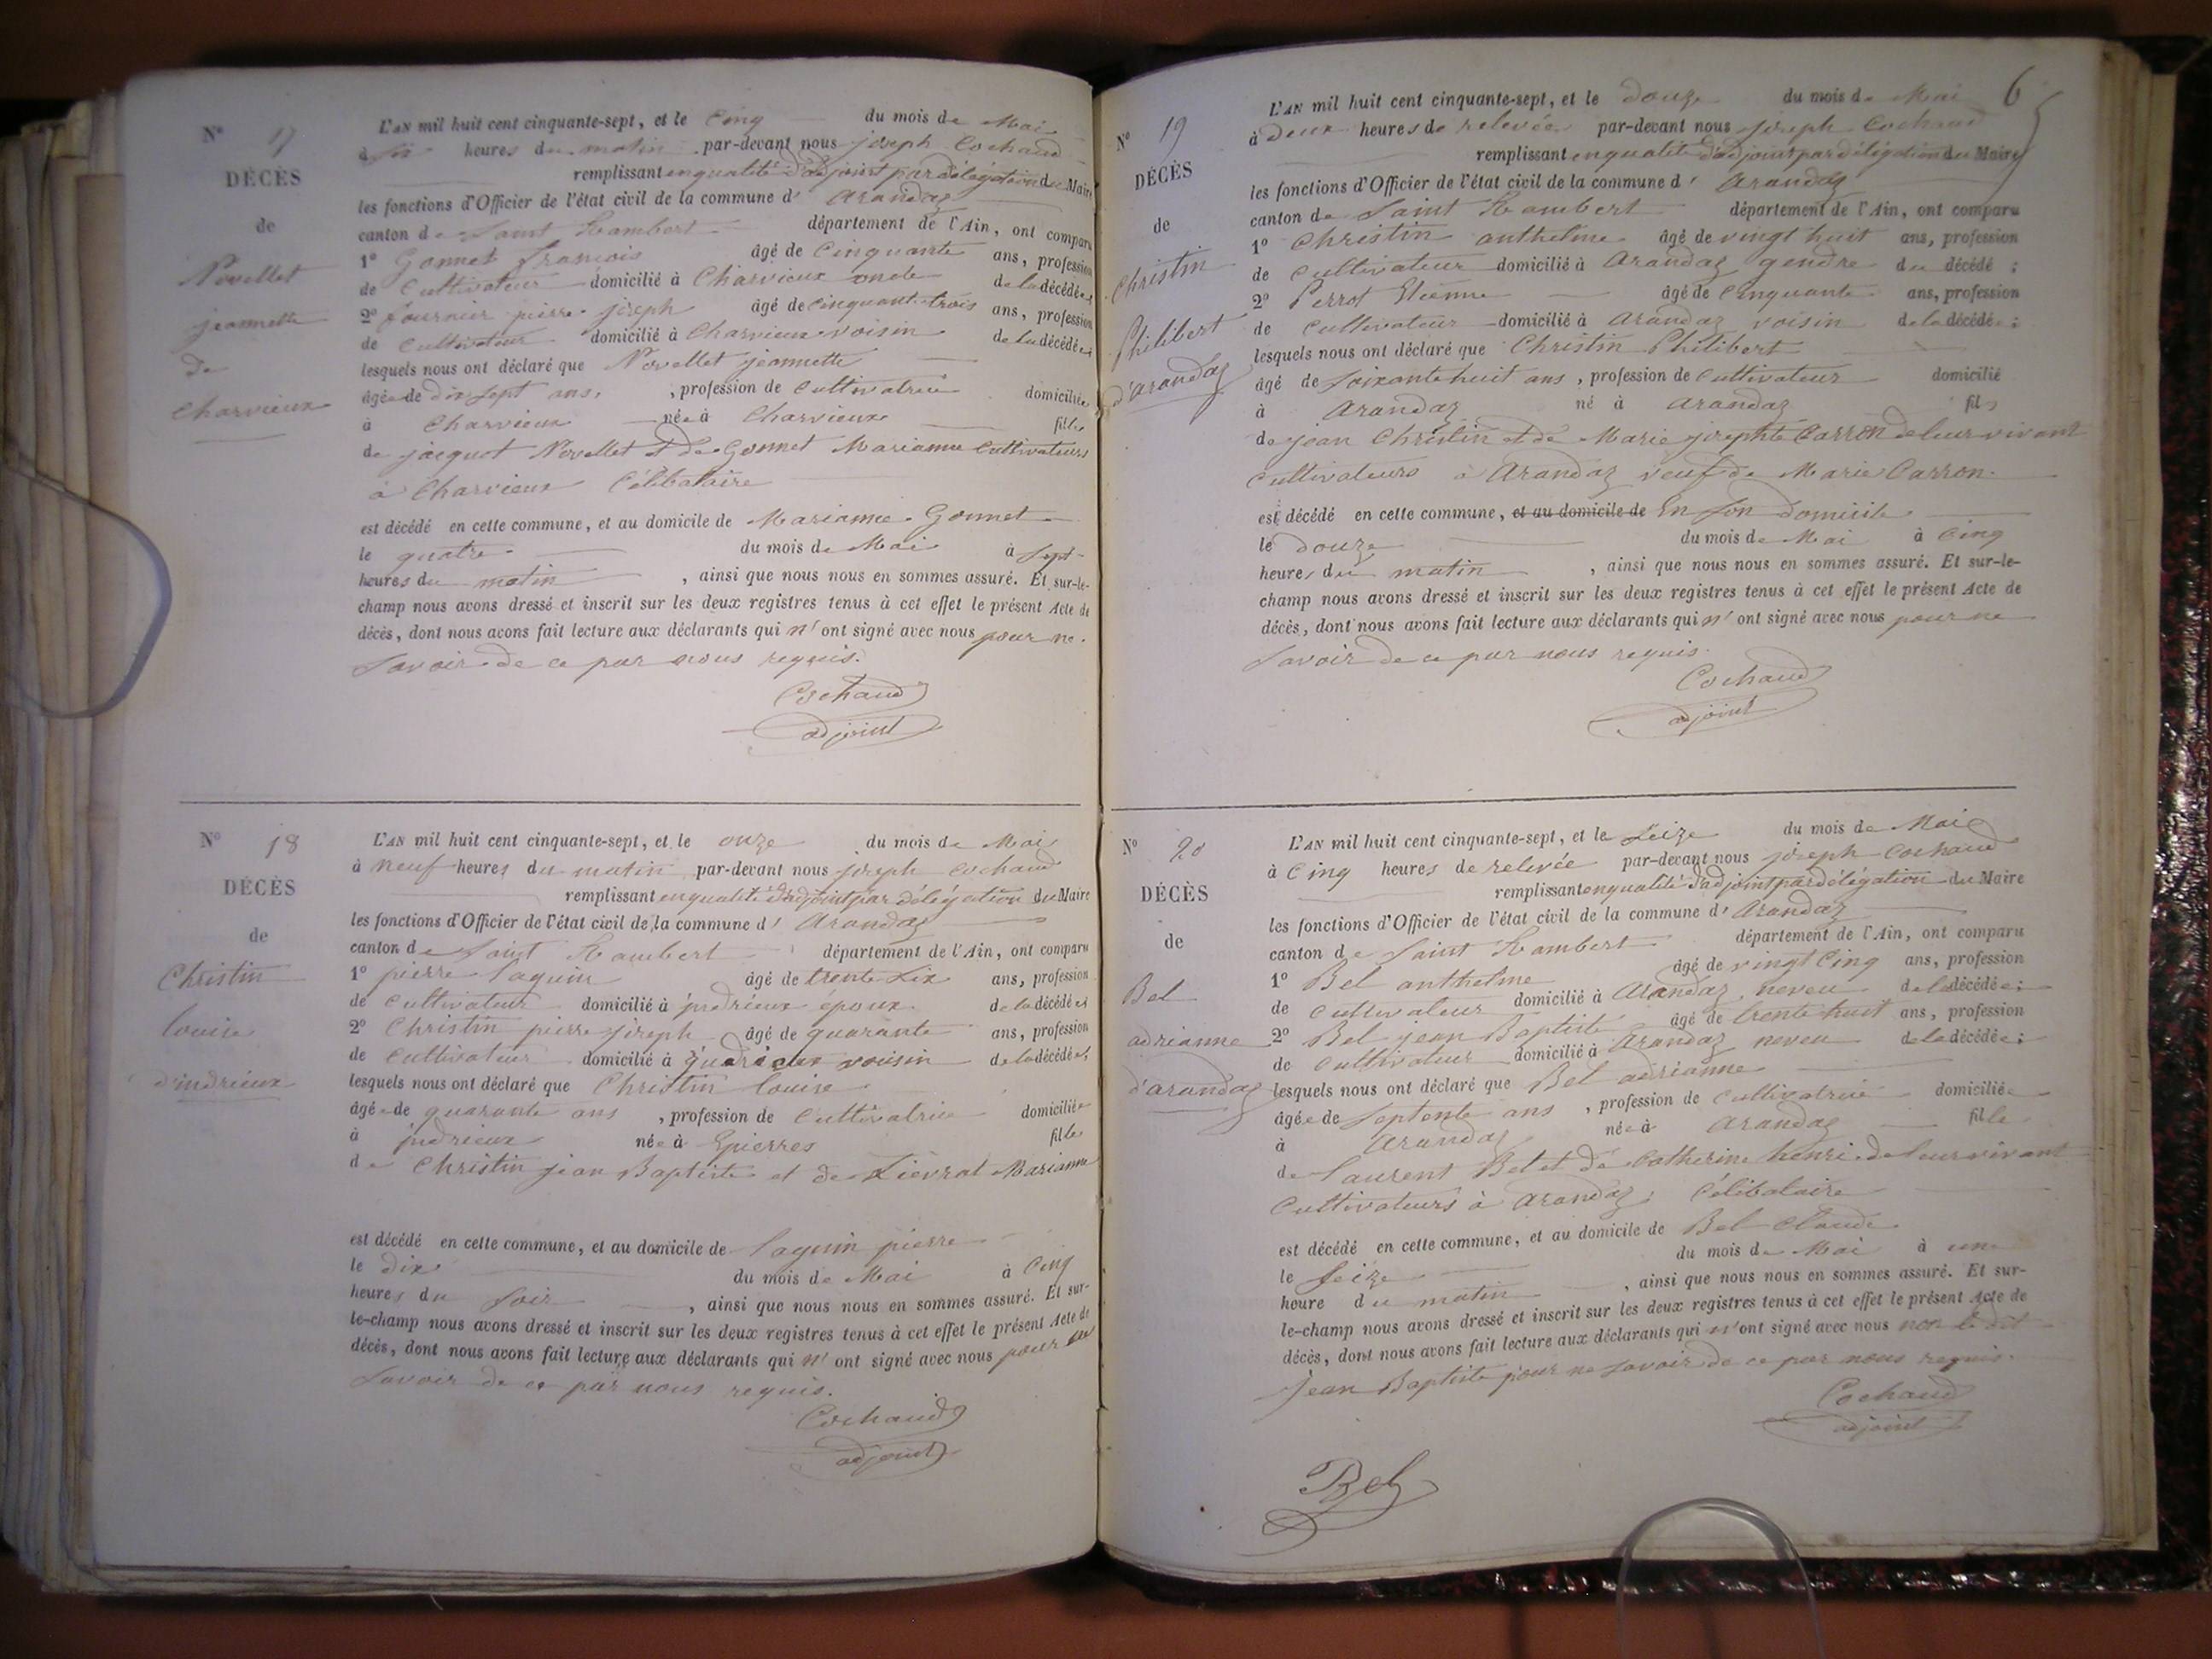 N° 17
DÉCÈS
de
Novellet
jeannette
de
Charvieux
L'AN mil huit cent cinquante-sept, et le Cinq du mois de Mai
à six heures du matin par-devant nous joseph Cochaud
remplissant en qualité d'adjoint par délégation du Maire
les fonctions d'Officier de l'état civil de la commune d' Arandaz
canton de Saint Rambert département de l'Ain, ont comparu
1° Gonnet françois âgé de Cinquante ans, profession
de Cultivateur domicilié à Charvieux oncle de la décédée
2° fournier pierre joseph âgé de cinquant-trois ans, profession
de Cultivateur domicilié à Charvieux voisin de la décédée
lesquels nous ont déclaré que Novellet jeannette
âgée de dix sept ans, profession de Cultivatrice domiciliée
à Charvieux née à Charvieux fille
de jacquot Novellet et de Gonnet Marianne Cultivateurs
à Charvieux Célibataire
est décédé en cette commune, et au domicile de Marianne Gonnet
le quatre du mois de Mai à sept
heures du matin, ainsi que nous nous en sommes assuré. Et sur-le-
champ nous avons dressé et inscrit sur les deux registres tenus à cet effet le présent Acte de
décès, dont nous avons fait lecture aux déclarants qui n' ont signé avec nous pour ne
savoir de ce par nous requis.
Cochaud
adjoint
N° 18
DÉCÈS
de
Christin
louise
d'indrieux
L'AN mil huit cent cinquante-sept, et le onze du mois de Mai
à neuf heures du matin par-devant nous joseph Cochaud
remplissant en qualité d'adjoint par délégation du Maire
les fonctions d'Officier de l'état civil de la commune d' Arandaz
canton de Saint Rambert département de l'Ain, ont comparu
1° pierre laguin âgé de trente six ans, profession
de Cultivateur domicilié à indrieux époux de la décédée
2° Christin pierre joseph âgé de quarante ans, profession
de Cultivateur domicilié à indrieux voisin de la décédée,
lesquels nous ont déclaré que Christin louise
âgée de quarante ans, profession de Cultivatrice domiciliée
à indrieux née à Epierres fille
de Christin jean Baptiste et de Lievrat Marianne
est décédé en cette commune, et au domicile de laguin pierre
le dix du mois de Mai à Cinq
heures du soir, ainsi que nous nous en sommes assuré. Et sur-
le-champ nous avons dressé et inscrit sur les deux registres tenus à cet effet le présent Acte de
décès, dont nous avons fait lecture aux déclarants qui n' ont signé avec nous pour ne
savoir de ce par nous requis.
Cochaud
adjoint
6
N° 19
DÉCÈS
de
Christin
Philibert
d'arandaz
L'AN mil huit cent cinquante-sept, et le douze du mois de Mai
à Deux heures de relevée par-devant nous joseph Cochaud
remplissant en qualité d'adjoint par délégation du Maire
les fonctions d'Officier de l'état civil de la commune d' Arandaz
canton de Saint Rambert département de l'Ain, ont comparu
1° Christin anthelme âgé de vingt huit ans, profession
de Cultivateur domicilié à Arandaz gendre du décédé ;
2° Perrot Etienne âgé de Cinquante ans, profession
de Cultivateur domicilié à Arandaz voisin de la décédée ;
lesquels nous ont déclaré que Christin Philibert
âgé de soixante huit ans, profession de Cultivateur domicilié
à Arandaz né à Arandaz fils
de jean Christin et de Marie josephte Carron de leur vivant
cultivateurs à Arandaz veuf de Marie Carron.
est décédé en cette commune, et au domicile de En son domicile
le douze du mois de Mai à Cinq
heures du matin, ainsi que nous nous en sommes assuré. Et sur-le-
champ nous avons dressé et inscrit sur les deux registres tenus à cet effet le présent Acte de
décès, dont nous avons fait lecture aux déclarants qui n' ont signé avec nous pour ne
savoir de ce par nous requis.
Cochaud
adjoint
N° 20
DÉCÈS
de
Bel
adrianne
d'arandaz
L'AN mil huit cent cinquante-sept, et le Seize du mois de Mai
à Cinq heures de relevée par-devant nous joseph Cochaud
remplissant en qualité d'adjoint par délégation du Maire
les fonctions d'Officier de l'état civil de la commune d' Arandaz
canton de Saint Rambert département de l'Ain, ont comparu
1° Bel anthelme âgé de vingt Cinq ans, profession
de cultivateur domicilié à Arandaz neveu de la décédée ;
2° Bel jean Baptiste âgé de trente huit ans, profession
de Cultivateur domicilié à Arandaz neveu de la décédée ;
lesquels nous ont déclaré que Bel adrianne
âgée de septente ans, profession de Cultivatrice domiciliée
à Arandaz née à Arandaz fille
de laurent Bel et de Catherine henri de leur vivant
Cultivateurs à Arandaz, Célibataire
est décédé en cette commune, et au domicile de Bel Claude
le seize du mois de Mai à une
heure du matin, ainsi que nous nous en sommes assuré. Et sur-
le-champ nous avons dressé et inscrit sur les deux registres tenus à cet effet le présent Acte de
décès, dont nous avons fait lecture aux déclarants qui n'ont signé avec nous non le dit
jean Baptiste pour ne savoir de ce par nous requis.
Cochaud
adjoint
Bel